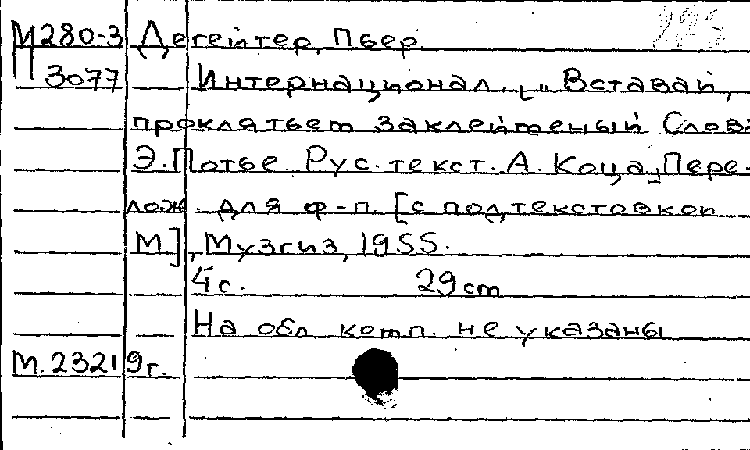 М280-3 Дегейтер, Пьер
М 3077 Интернационал. [„Вставай,
проклятьем заклейменый Слова
Э.Потье Рус. текст. А. Коца] Пере-
лож. для ф-п. [с подтекстовкой
М], Музгиз, 1955.
4с. 29cm
На обл комп. не указаны
М.23219г.